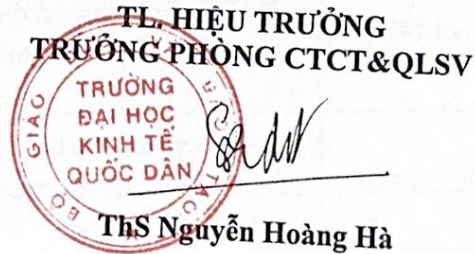 TL. HIỆU TRƯỞNG
TRƯỞNG PHÒNG CTCT&QLSV
BỘ GIÁO VÀ ĐÀO TẠO
TRƯỜNG
ĐẠI HỌC
KINH TẾ
QUỐC DÂN
ThS Nguyễn Hoàng Hà